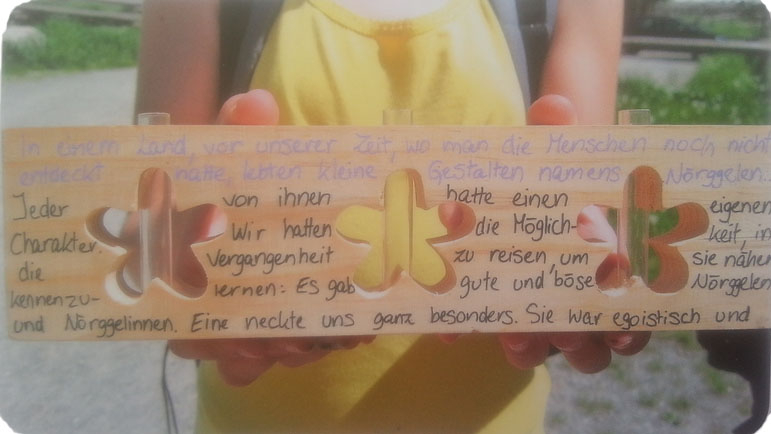 In einem Land, vor unserer Zeit, wo man die Menschen noch nicht
entdeckt hatte, lebten kleine Gestalten namens Nörggelen...
Jeder von ihnen hatte einen eigenen
Charakter. Wir hatten die Möglich- keit, in
die Vergangenheit zu reisen, um sie näher
kennenzu- lernen: Es gab gute und böse Nörggelen
und Nörggelinnen. Eine neckte uns ganz besonders. Sie war egoistisch und